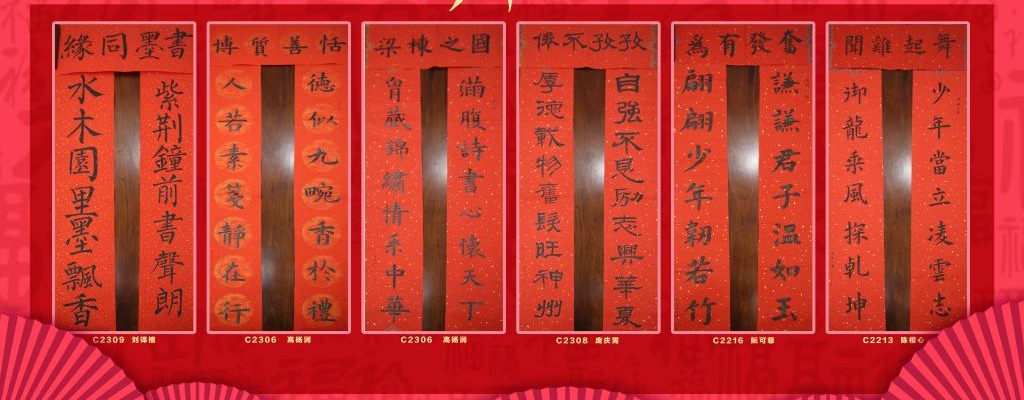 書墨同緣
紫荊鐘前書聲朗
水木園里墨飄香
C2309
恬善質博
德似九畹香於禮
人若素箋靜在行
C2306
國之棟梁
滿腹詩書心懷天下
胷藏錦繡情系中華
C2306
孜孜不倦
自強不息励志興華夏
厚德載物奮髮旺神州
C2308
奮發有為
謙謙君子溫如玉
翩翩少年韌若竹
C2216 阮可菲
聞雞起舞
少年當立凌雲志
御龍乘風探乾坤
C2213